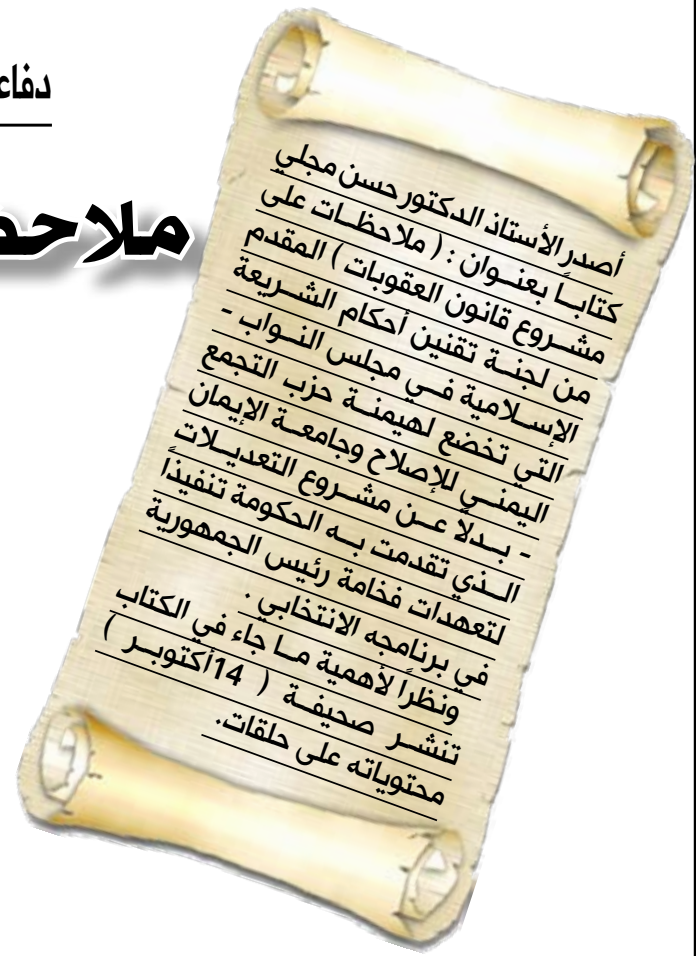 أصدر الأستاذ الدكتور حسن مجلي
كتاباً بعنوان : ( ملاحظات على
مشروع قانون العقوبات ) المقدم
من لجنة تقنين أحكام الشريعة
الإسلامية في مجلس النواب -
التي تخضع لهيمنة حزب التجمع
اليمني للإصلاح وجامعة الإيمان
- بدلاً عن مشروع التعديلات
الذي تقدمت به الحكومة تنفيذاً
لتعهدات فخامة رئيس الجمهورية
في برنامجه الانتخابي .
ونظراً لأهمية ما جاء في الكتاب
تنشر صحيفة ( 14أكتوبر )
محتوياته على حلقات.